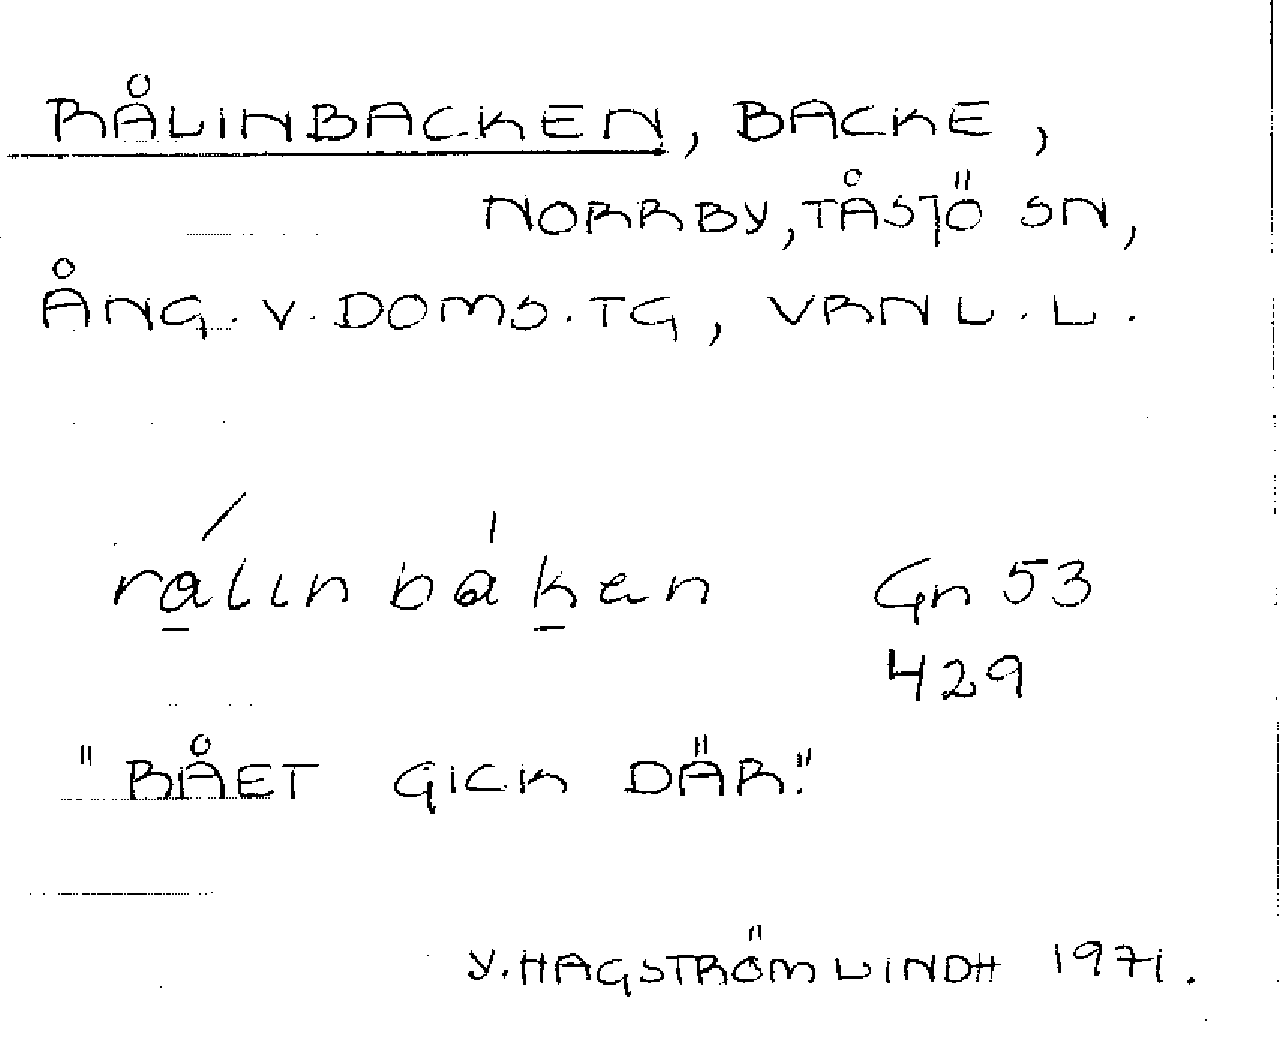 RÅLINBACKEN, BACKE,
NORRBY, TÅSJÖ SN,
ÅNG. V. DOMS. TG, VRNL. L.
rálinbáken Gn 53
429
"RÅET GICK DÄR."
Y. HAGSTRÖM LINDH 1971.